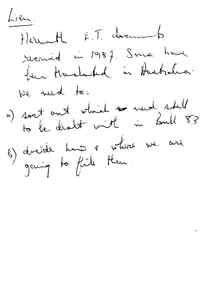 Herewith E.T. documents
received in 1987. Some have
been translated in Australia.
We need to:
a) sort out which need still
to be dealt with in
b) decide how & where we are
going to file them